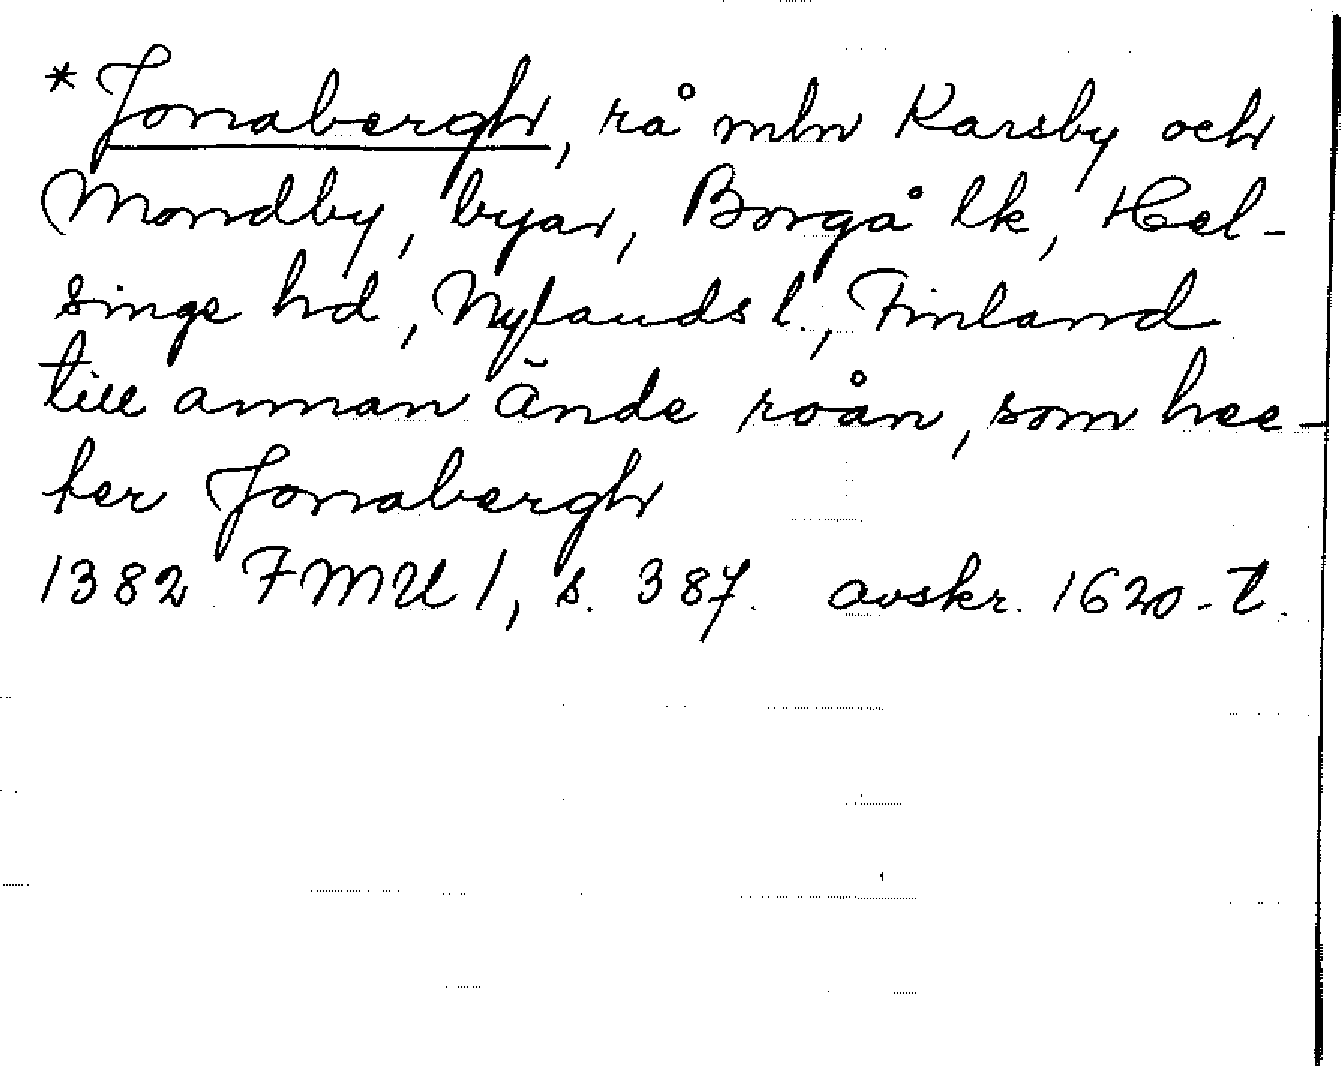 *Jonabergh, rå mln Karsby och
Mondby, byar, Borgå lk, Hel-
singe hd, Nylands l., Finland
till annan ände roån, som hee-
ter Jonabergh
1382 FMU 1, s. 387. avskr. 1620-t.